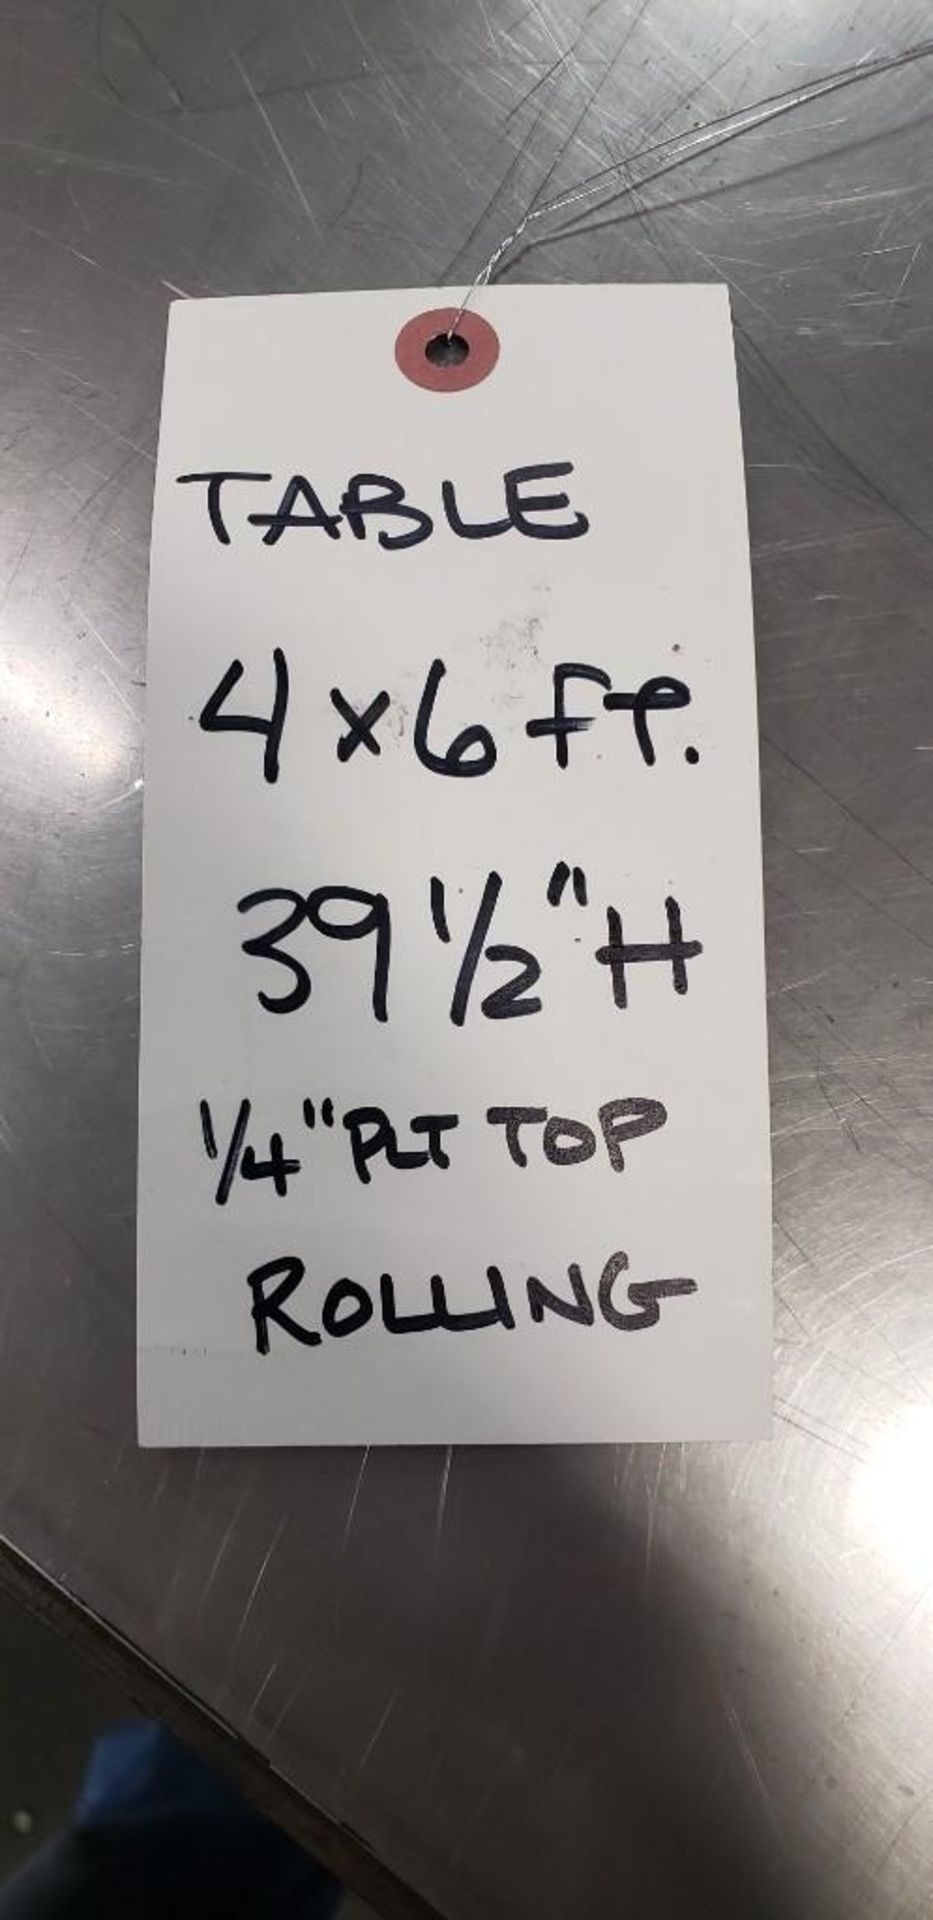 TABLE
4 x 6 FT.
39 1/2" H
1/4" PLT TOP
ROLLING